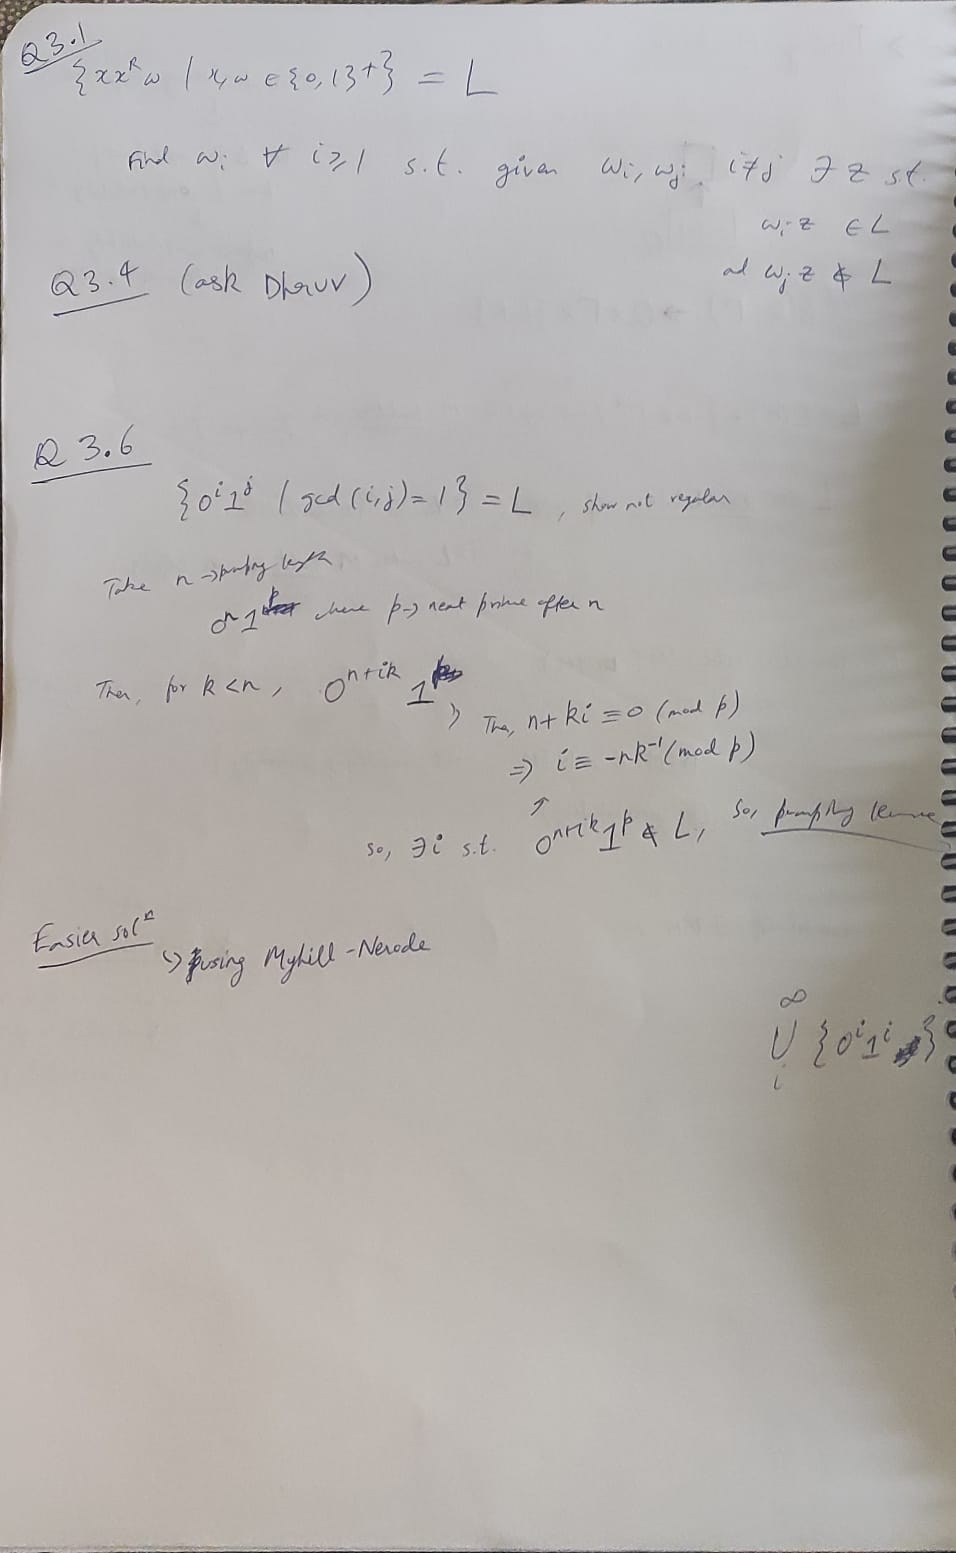 Q3.1
{xx^R w | x,w ∈ {0,1}^+} = L
Find w_i ∀ i⩾1 s.t. given w_i, w_j, i≠j ∃ z st.
w_i z ∈ L
ad w_j z ∉ L
Q3.4 (ask Dhruv)
Q 3.6
{0^i 1^j | gcd(i,j)=1} = L, show not regular
Take n → pumping length
0^n 1^p where p → next prime after n
Then, for k<n, 0^{n+ik} 1^p
Then, n+ki ≡ 0 (mod p)
⇒ i ≡ -nk^{-1} (mod p)
So, ∃ i s.t. 0^{n+ik} 1^p ∉ L, So, pumping lemma
Easier sol^n
↳ using Myhill-Nerode
∞
U {0^i 1^i }
i